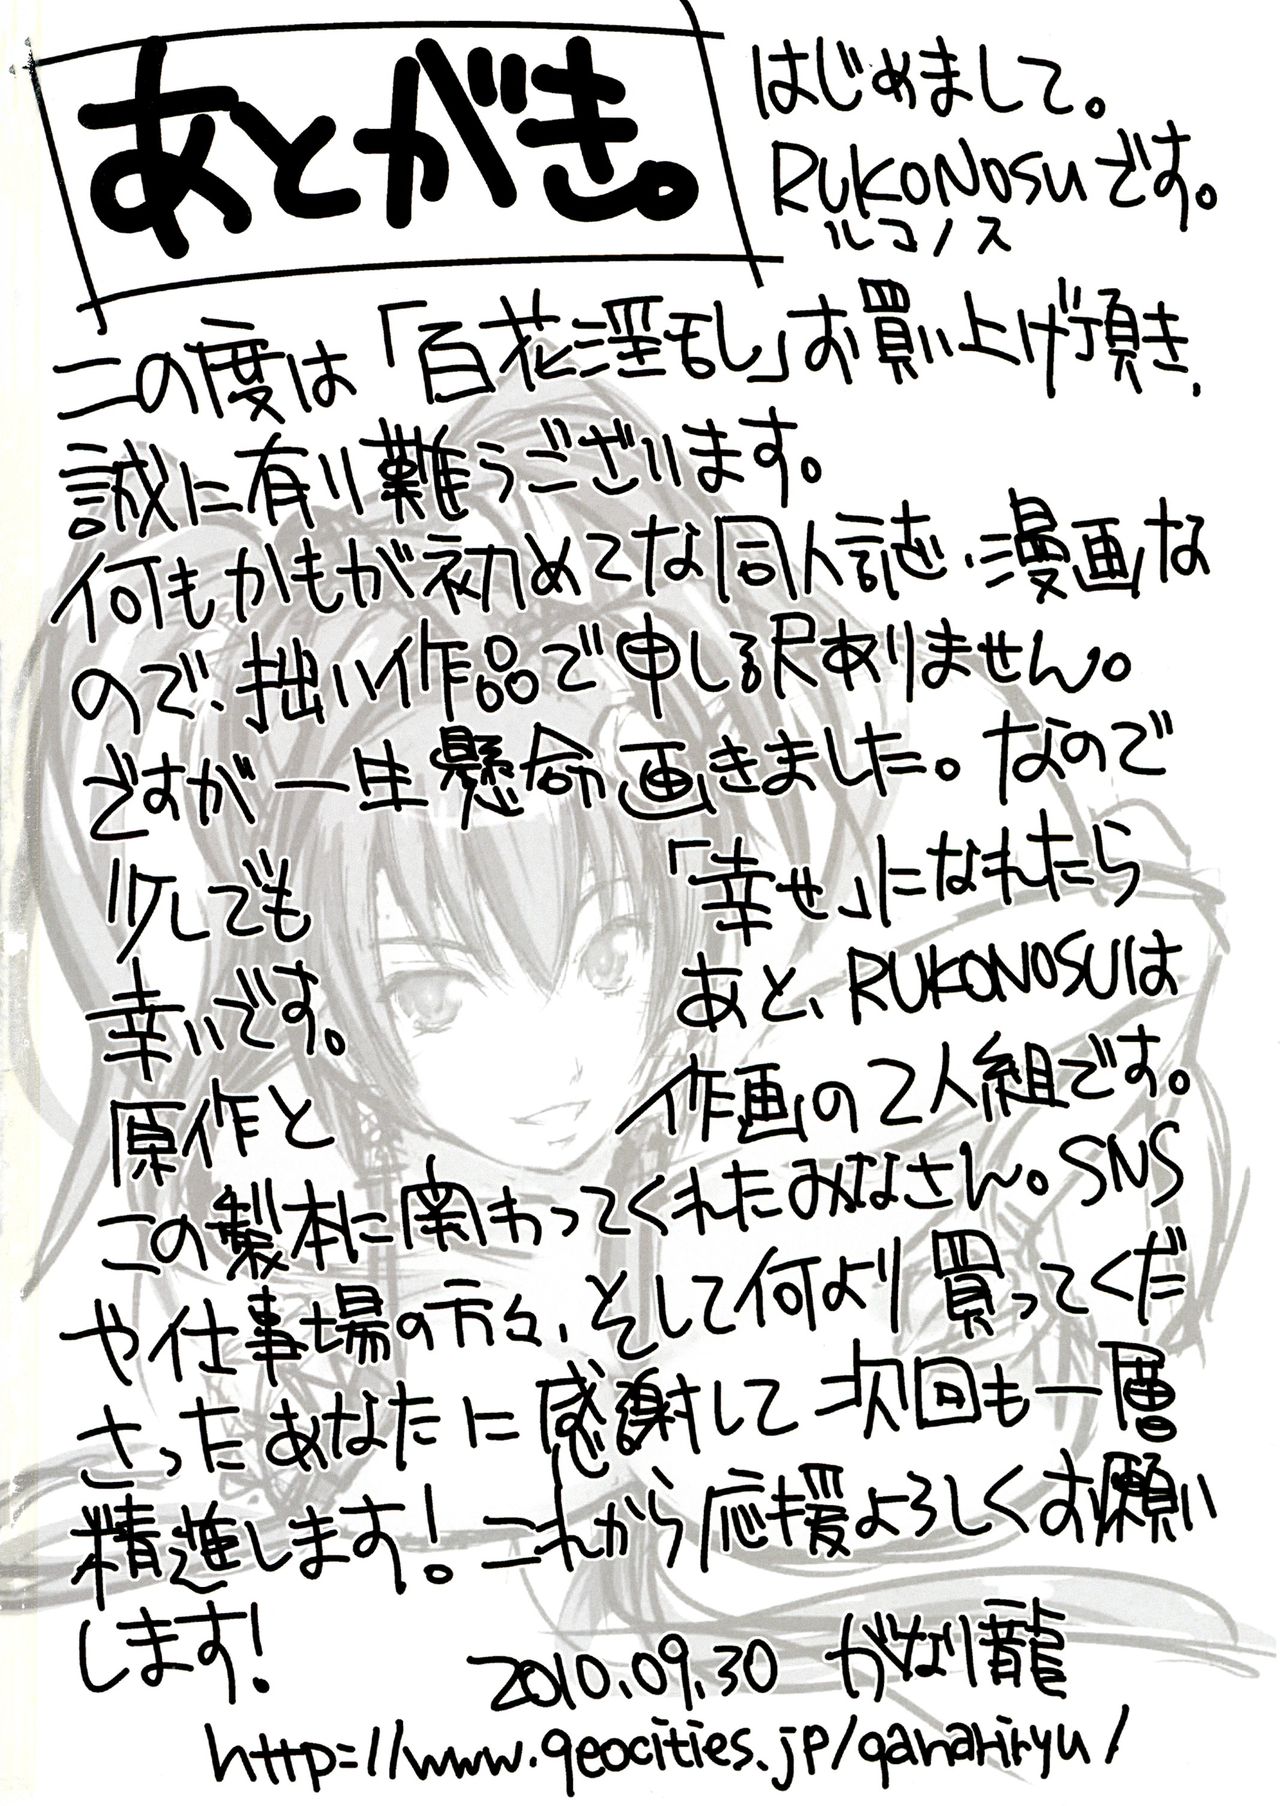 あとがき。
はじめまして。
RUKONOSUです。
ルコノス
この度は「百花淫乱し」お買い上げ頂き、
誠に有り難うございます。
何もかもが初めてな同人誌・漫画な
ので、拙い作品で申し訳ありません。
ですが一生懸命画きました。なので
少しでも「幸せ」になれたら
幸いです。あと、RUKONOSUは
原作と作画の2人組です。
この製本に関わってくれたみなさん。SNS
や仕事場の方々、そして何より買ってくだ
さったあなたに感謝して次回も一層
精進します!これから応援よろしくお願い
します!
2010.09.30 がなり龍
http://www.geocities.jp/ganariryu/